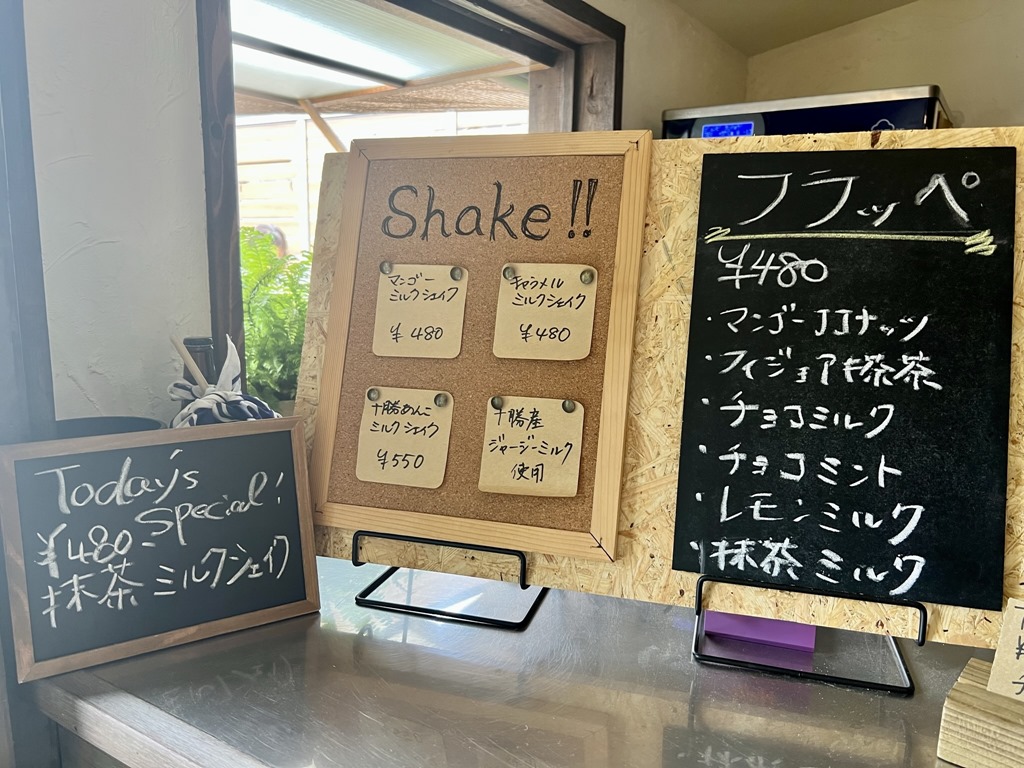 Today's
Special!
¥480-
抹茶ミルクシェイク
Shake!!
マンゴー
ミルクシェイク
¥480
キャラメル
ミルクシェイク
¥480
十勝あんこ
ミルクシェイク
¥550
十勝産
ジャージーミルク
使用
フラッペ
¥480
・マンゴーココナッツ
・フィジョア抹茶
・チョコミルク
・チョコミント
・レモンミルク
・抹茶ミルク